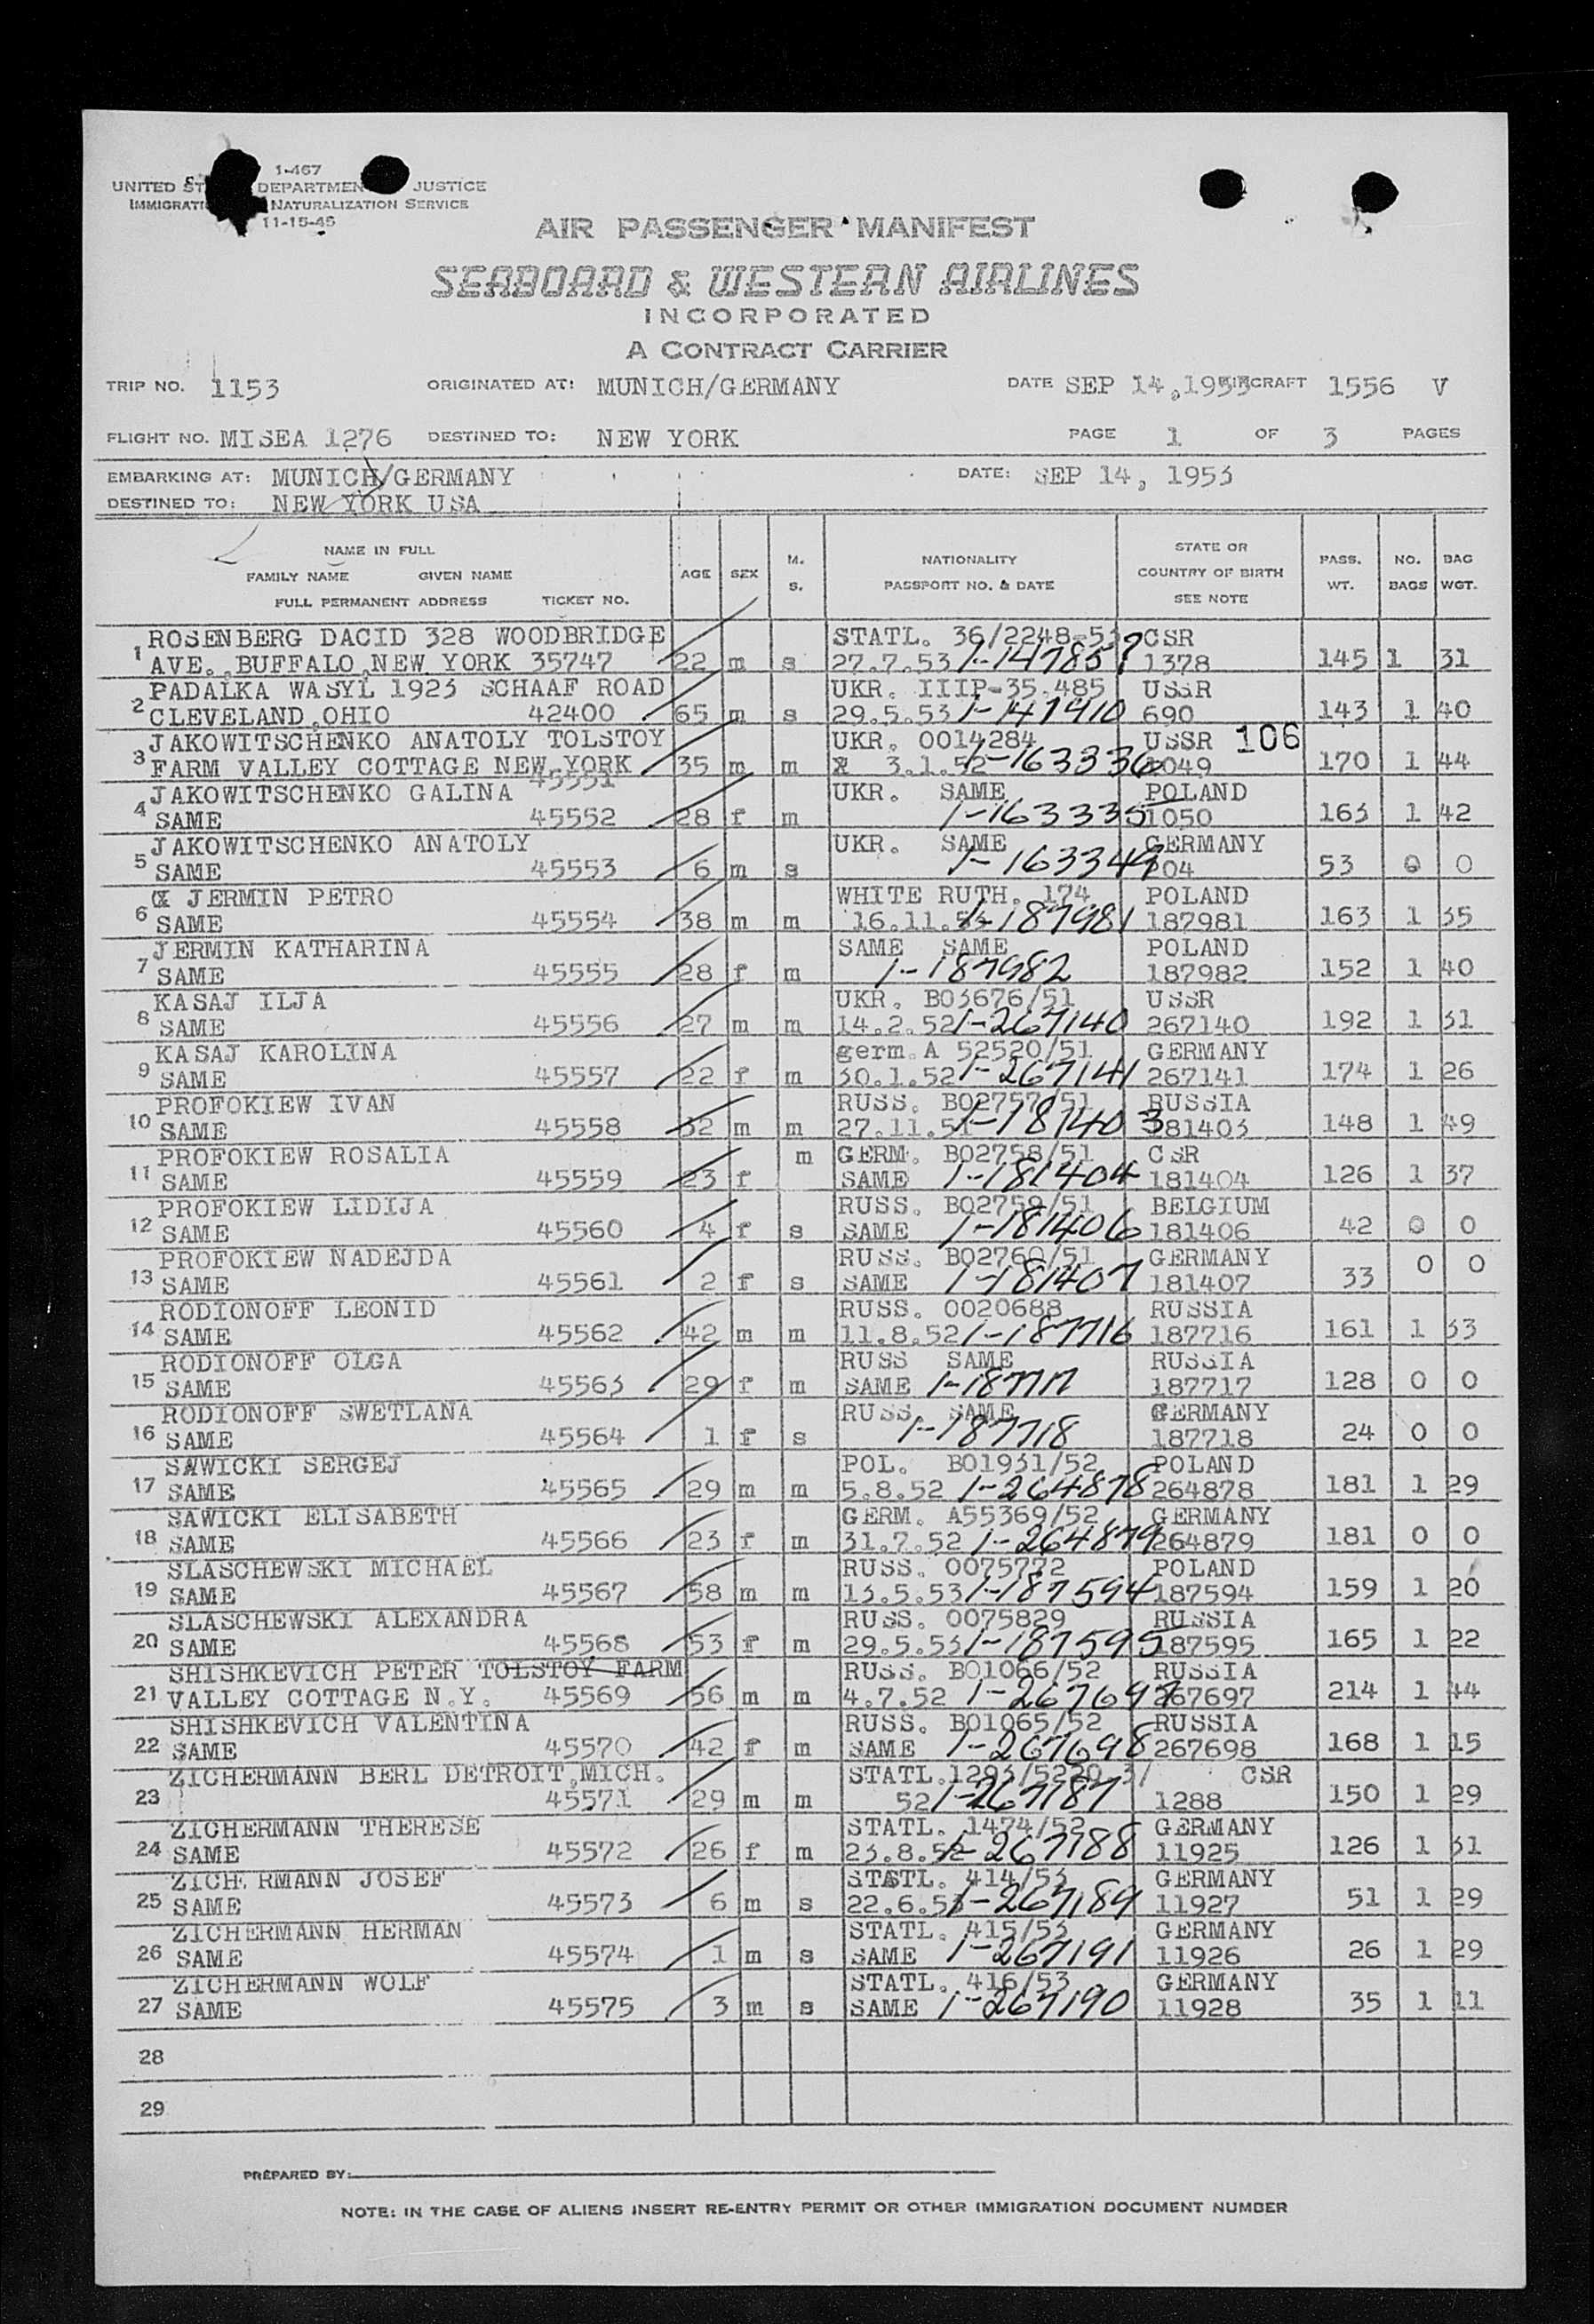 1-467
UNITED ST DEPARTMEN JUSTICE
IMMIGRATI NATURALIZATION SERVICE
11-15-45
AIR PASSENGER MANIFEST
SEABOARD & WESTERN AIRLINES
INCORPORATED
A CONTRACT CARRIER
TRIP NO. 1153 ORIGINATED AT: MUNICH/GERMANY DATE SEP 14,1953 CRAFT 1556 V
FLIGHT NO. MISEA 1276 DESTINED TO: NEW YORK PAGE 1 OF 3 PAGES
EMBARKING AT: MUNICH/GERMANY DATE: SEP 14, 1953
DESTINED TO: NEW YORK USA
NAME IN FULL
FAMILY NAME GIVEN NAME
FULL PERMANENT ADDRESS TICKET NO.
AGE SEX M. S.
NATIONALITY
PASSPORT NO. & DATE
STATE OR
COUNTRY OF BIRTH
SEE NOTE
PASS. WT. NO. BAGS BAG WGT.
ROSENBERG DACID 328 WOODBRIDGE STATL. 36/2248-53 CSR
1 AVE. BUFFALO,NEW YORK 35747 22 m s 27.7.53 1-147857 1378 145 1 31
PADALKA WASYL 1923 SCHAAF ROAD UKR. IIIP-35.485 USSR
2 CLEVELAND,OHIO 42400 65 m s 29.5.53 1-147910 690 143 1 40
JAKOWITSCHENKO ANATOLY TOLSTOY UKR. 0014284 USSR 106
3 FARM VALLEY COTTAGE NEW YORK 35 m m 3.1.52 1-163336 1049 170 1 44
45551
JAKOWITSCHENKO GALINA UKR. SAME POLAND
4 SAME 45552 28 f m 1-163335 1050 163 1 42
JAKOWITSCHENKO ANATOLY UKR. SAME GERMANY
5 SAME 45553 6 m s 1-163349 204 53 0 0
JERMIN PETRO WHITE RUTH. 174 POLAND
6 SAME 45554 38 m m 16.11.53 1-187981 187981 163 1 35
JERMIN KATHARINA SAME SAME POLAND
7 SAME 45555 28 f m 1-187982 187982 152 1 40
KASAJ ILJA UKR. B03676/51 USSR
8 SAME 45556 27 m m 14.2.52 1-267140 267140 192 1 31
KASAJ KAROLINA germ.A 52520/51 GERMANY
9 SAME 45557 22 f m 30.1.52 1-267141 267141 174 1 26
PROFOKIEW IVAN RUSS. B02757/51 RUSSIA
10 SAME 45558 32 m m 27.11.51 1-181403 181403 148 1 49
PROFOKIEW ROSALIA m GERM. B02758/51 CSR
11 SAME 45559 23 f SAME 1-181404 181404 126 1 37
PROFOKIEW LIDIJA RUSS. B02759/51 BELGIUM
12 SAME 45560 4 f s SAME 1-181406 181406 42 0 0
PROFOKIEW NADEJDA RUSS. B02760/51 GERMANY
13 SAME 45561 2 f s SAME 1-181407 181407 33 0 0
RODIONOFF LEONID RUSS. 0020688 RUSSIA
14 SAME 45562 42 m m 11.8.52 1-187716 187716 161 1 33
RODIONOFF OLGA RUSS SAME RUSSIA
15 SAME 45563 29 f m SAME 1-187717 187717 128 0 0
RODIONOFF SWETLANA RUSS. SAME GERMANY
16 SAME 45564 1 f s 1-187718 187718 24 0 0
SAWICKI SERGEJ POL. B01931/52 POLAND
17 SAME 45565 29 m m 5.8.52 1-264878 264878 181 1 29
SAWICKI ELISABETH GERM. A55369/52 GERMANY
18 SAME 45566 23 f m 31.7.52 1-264879 264879 181 0 0
SLASCHEWSKI MICHAEL RUSS. 0075772 POLAND
19 SAME 45567 58 m m 13.5.53 1-187594 187594 159 1 20
SLASCHEWSKI ALEXANDRA RUSS. 0075829 RUSSIA
20 SAME 45568 53 f m 29.5.53 1-187595 187595 165 1 22
SHISHKEVICH PETER TOLSTOY FARM RUSS. B01066/52 RUSSIA
21 VALLEY COTTAGE N.Y. 45569 56 m m 4.7.52 1-267697 267697 214 1 44
SHISHKEVICH VALENTINA RUSS. B01065/52 RUSSIA
22 SAME 45570 42 f m SAME 1-267698 267698 168 1 15
ZICHERMANN BERL DETROIT,MICH. STATL.1293/5220.3/ CSR
23 45571 29 m m 52 1-267187 1288 150 1 29
ZICHERMANN THERESE STATL. 1474/52 GERMANY
24 SAME 45572 26 f m 23.8.52 1-267188 11925 126 1 31
ZICHERMANN JOSEF STATL. 414/53 GERMANY
25 SAME 45573 6 m s 22.6.53 1-267189 11927 51 1 29
ZICHERMANN HERMAN STATL. 415/53 GERMANY
26 SAME 45574 1 m s SAME 1-267191 11926 26 1 29
ZICHERMANN WOLF STATL. 416/53 GERMANY
27 SAME 45575 3 m s SAME 1-267190 11928 35 1 11
28
29
PREPARED BY:
NOTE: IN THE CASE OF ALIENS INSERT RE-ENTRY PERMIT OR OTHER IMMIGRATION DOCUMENT NUMBER